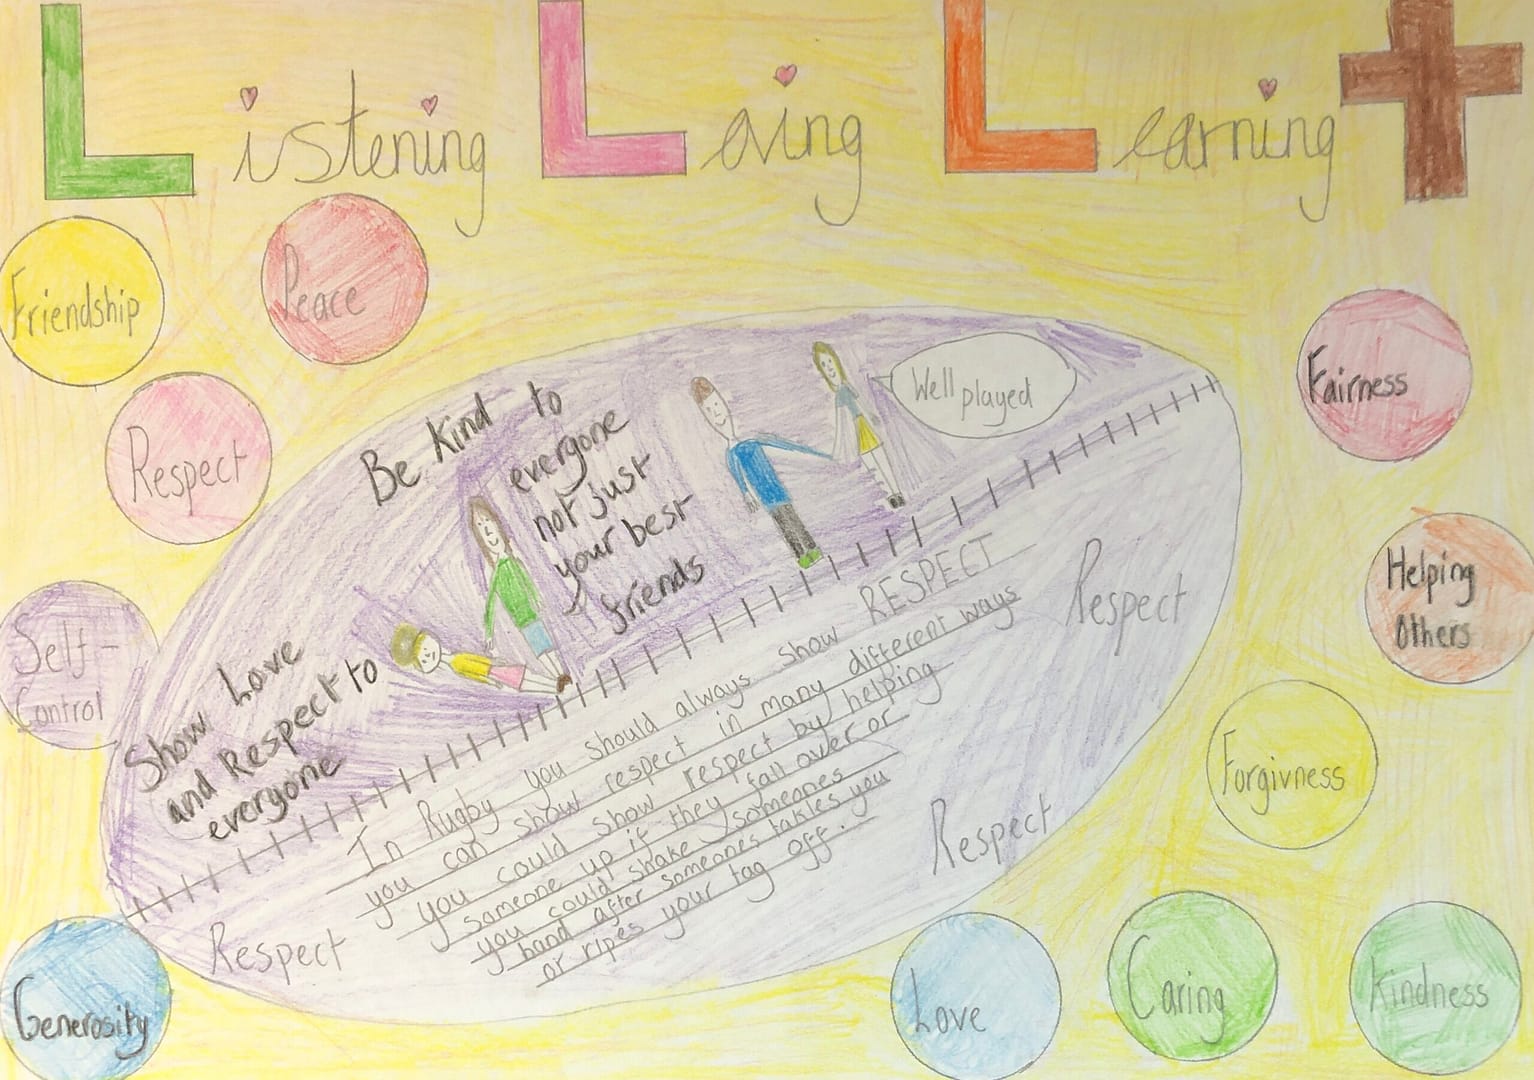 Listening Loving Learning +
Friendship
Peace
Respect
Self-
Control
Generosity
Fairness
Helping
Others
Forgivness
Love
Caring
Kindness
Be Kind to
everyone
not just
your best
friends
Well played
Show Love
and Respect to
everyone
In Rugby you should always show RESPECT
you can show respect in many different ways
you could show respect by helping
someone up if they fall over or
you could shake someones
hand after someones takles you
or ripes your tag off.
Respect
Respect
Respect